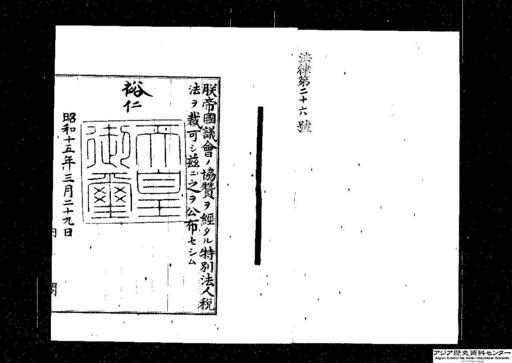 法律第二十六號
朕帝國議會ノ協贊ヲ經タル特別法人税
法ヲ裁可シ茲ニ之ヲ公布セシム
裕仁
天皇
御璽
昭和十五年三月二十九日
内
アジア歴史資料センター
Japan Center for Asian Historical Records